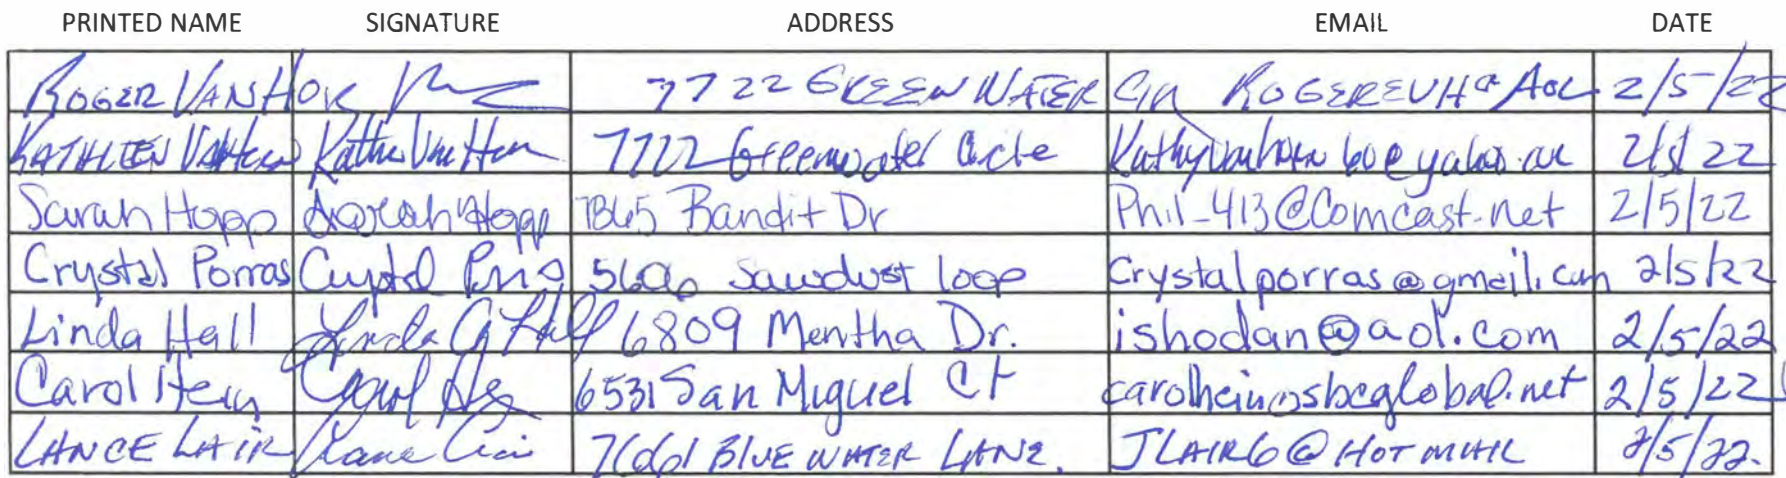 PRINTED NAME SIGNATURE ADDRESS EMAIL DATE
ROGER VANHOR 7722 GREEN WATER CIR ROGEREVH@AOL 2/5/22
KATHLEEN VanHorn Kathy Van Horn 7722 Greenwater Circle 2/5/22
Sarah Hopp Sarah Hopp 7865 Bandit Dr Phil_413@Comcast.net 2/5/22
Crystal Porras 5606 Sawdust loop crystalporras@gmail.com 2/5/22
Linda Hall Linda G Hall 6809 Mentha Dr. ishodan@aol.com 2/5/22
Carol Hein Carol 6531 San Miguel Ct carolhein@sbcglobal.net 2/5/22
LANCE LAIR Lance Lair 7661 BLUE WATER LANE. JLAIR6@HOTMAIL 2/5/22.